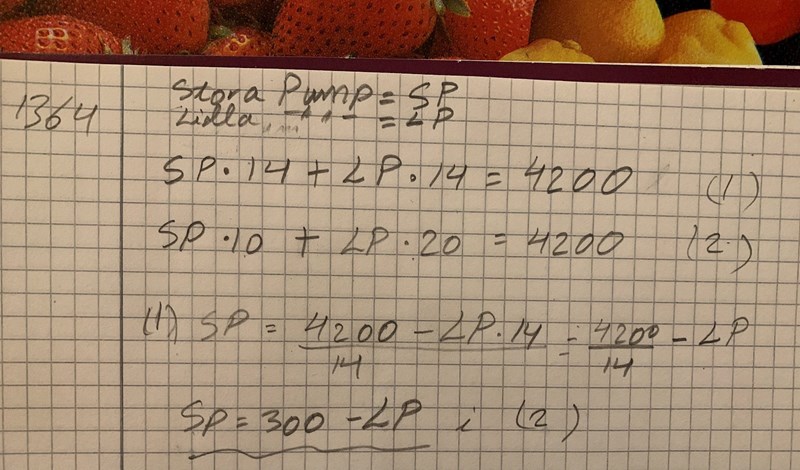 1364
Stora Pump = SP
Lilla -"- = LP
SP · 14 + LP · 14 = 4200 (1)
SP · 10 + LP · 20 = 4200 (2)
(1) SP = (4200 - LP · 14)/14 = 4200/14 - LP
SP = 300 - LP i (2)